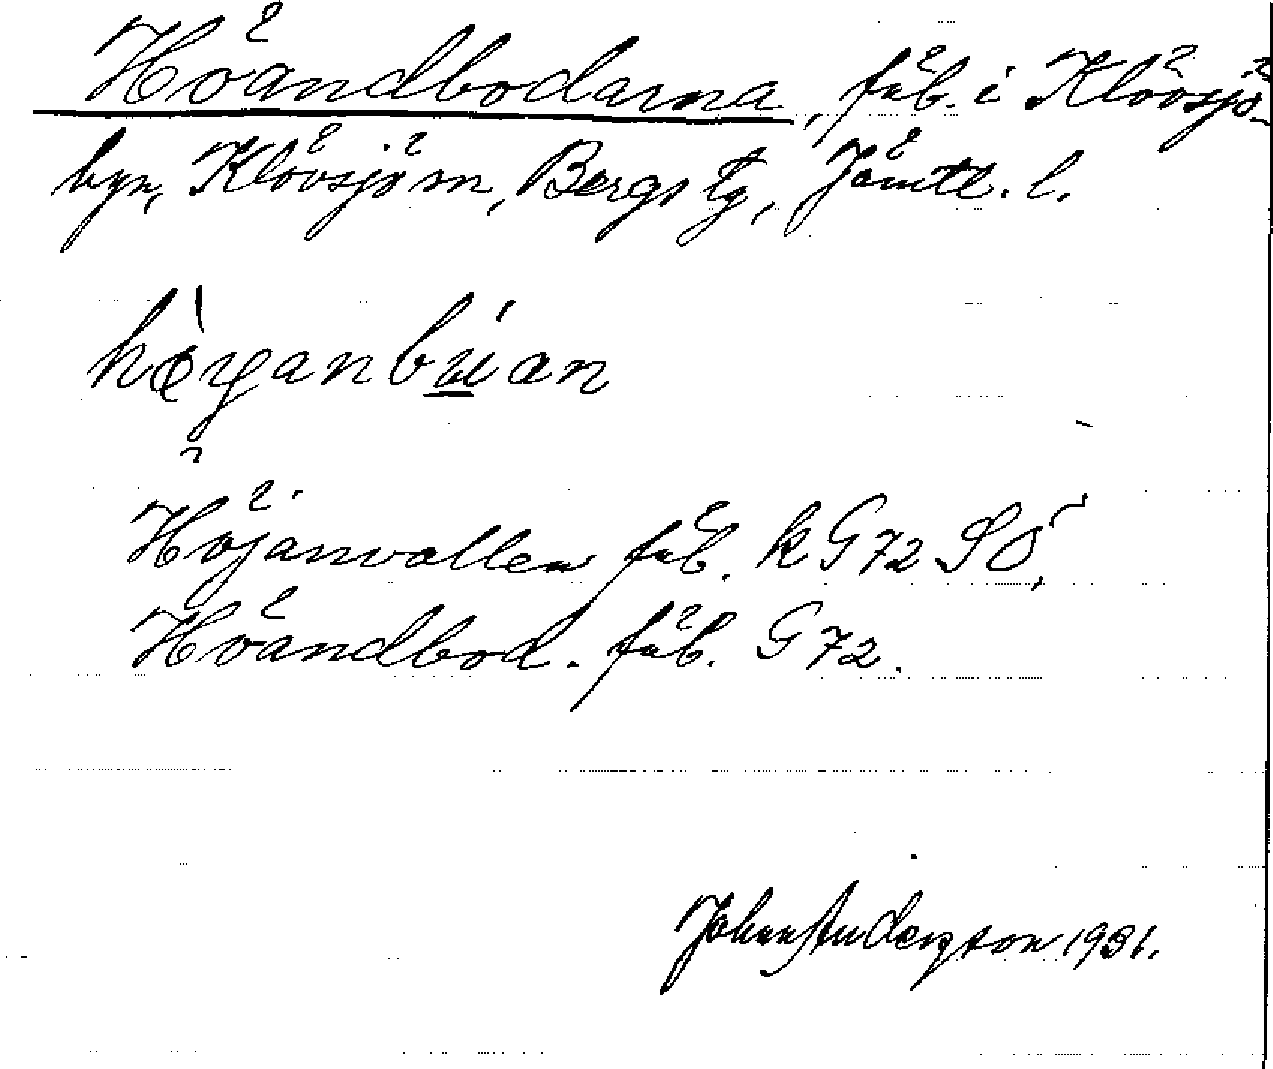 Höåndbodarna, fäb. i Klövsjö-
byn, Klövsjö sn, Bergs tg, Jämtl. l.
Höjånvallen fäb. k G72 SO,
Höåndbod. fäb. G 72.
Johan Anderzson 1931.